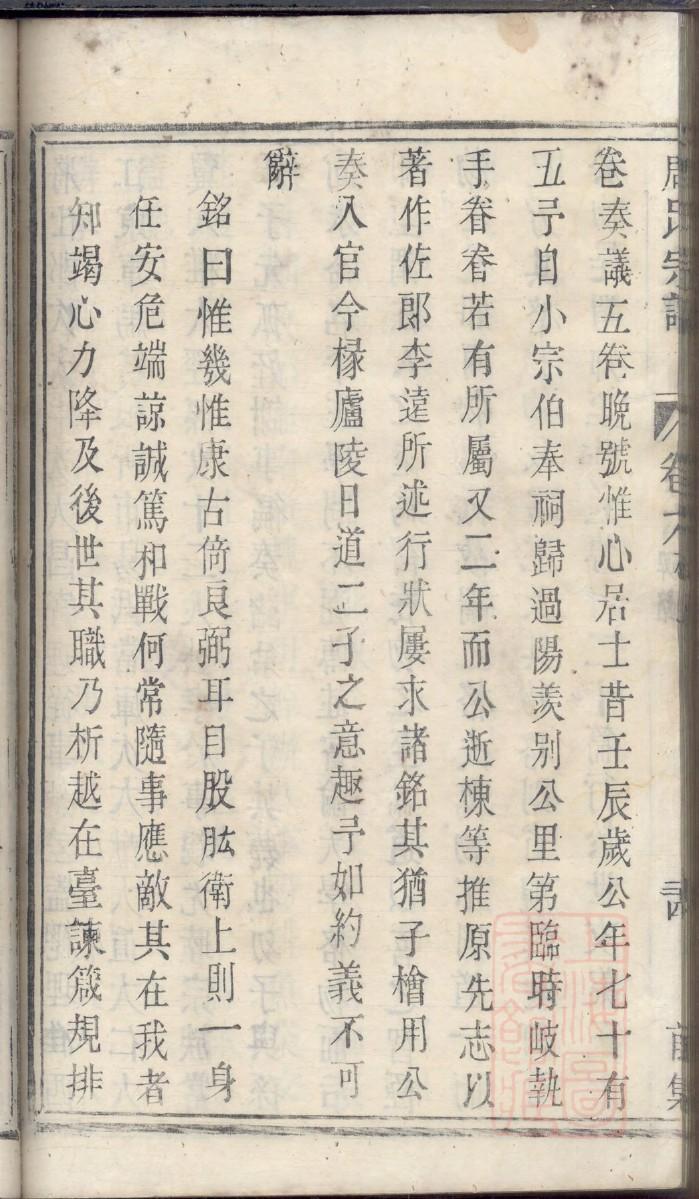 周氏宗譜 卷六
前集
卷奏議五卷晚號惟心居士昔壬辰歲公年七十有
五予自小宗伯奉祠歸過陽羨别公里第臨時岐執
手眷眷若有所屬又二年而公逝棟等推原先志以
著作佐郎李遠所述行狀屢求諸銘其猶子檜用公
奏入官今椽廬陵日道二子之意趣予如約義不可
辭
銘曰惟幾惟康古倚良弼耳目股肱衛上則一身
任安危端諒誠篤和戰何常隨事應敵其在我者
知竭心力降及後世其職乃析越在臺諫箴規排